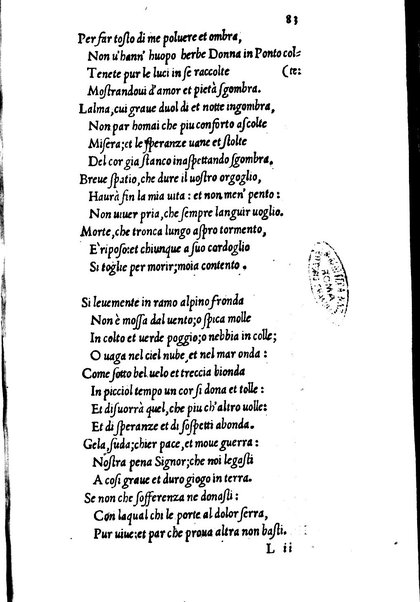 83
Per far tosto di me poluere et ombra,
Non u'hann' huopo herbe Donna in Ponto col=
Tenete pur le luci in se raccolte (te:
Mostrandoui d'amor et pietà sgombra.
Lalma, cui graue duol di et notte ingombra,
Non par homai che piu conforto ascolte
Misera; et le speranze uane et stolte
Del cor gia stanco inaspettando sgombra.
Breue spatio, che dure il uostro orgoglio,
Haurà fin la mia uita: et non men' pento:
Non uiuer pria, che sempre languir uoglio.
Morte, che tronca lungo aspro tormento,
E' riposo: et chiunque a suo cordoglio
Si toglie per morir; moia contento.
Si leuemente in ramo alpino fronda
Non è mossa dal uento; o spica molle
In colto et uerde poggio; o nebbia in colle;
O uaga nel ciel nube, et nel mar onda:
Come sotto bel uelo et treccia bionda
In picciol tempo un cor si dona et tolle:
Et disuorrà quel, che piu ch'altro uolle:
Et di speranze et di sospetti abonda.
Gela, suda; chier pace, et moue guerra:
Nostra pena Signor; che noi legasti
A cosi graue et duro giogo in terra.
Se non che sofferenza ne donasti:
Con laqual chi le porte al dolor serra,
Pur uiue: et par che proua altra non basti.
L ii
ROMA